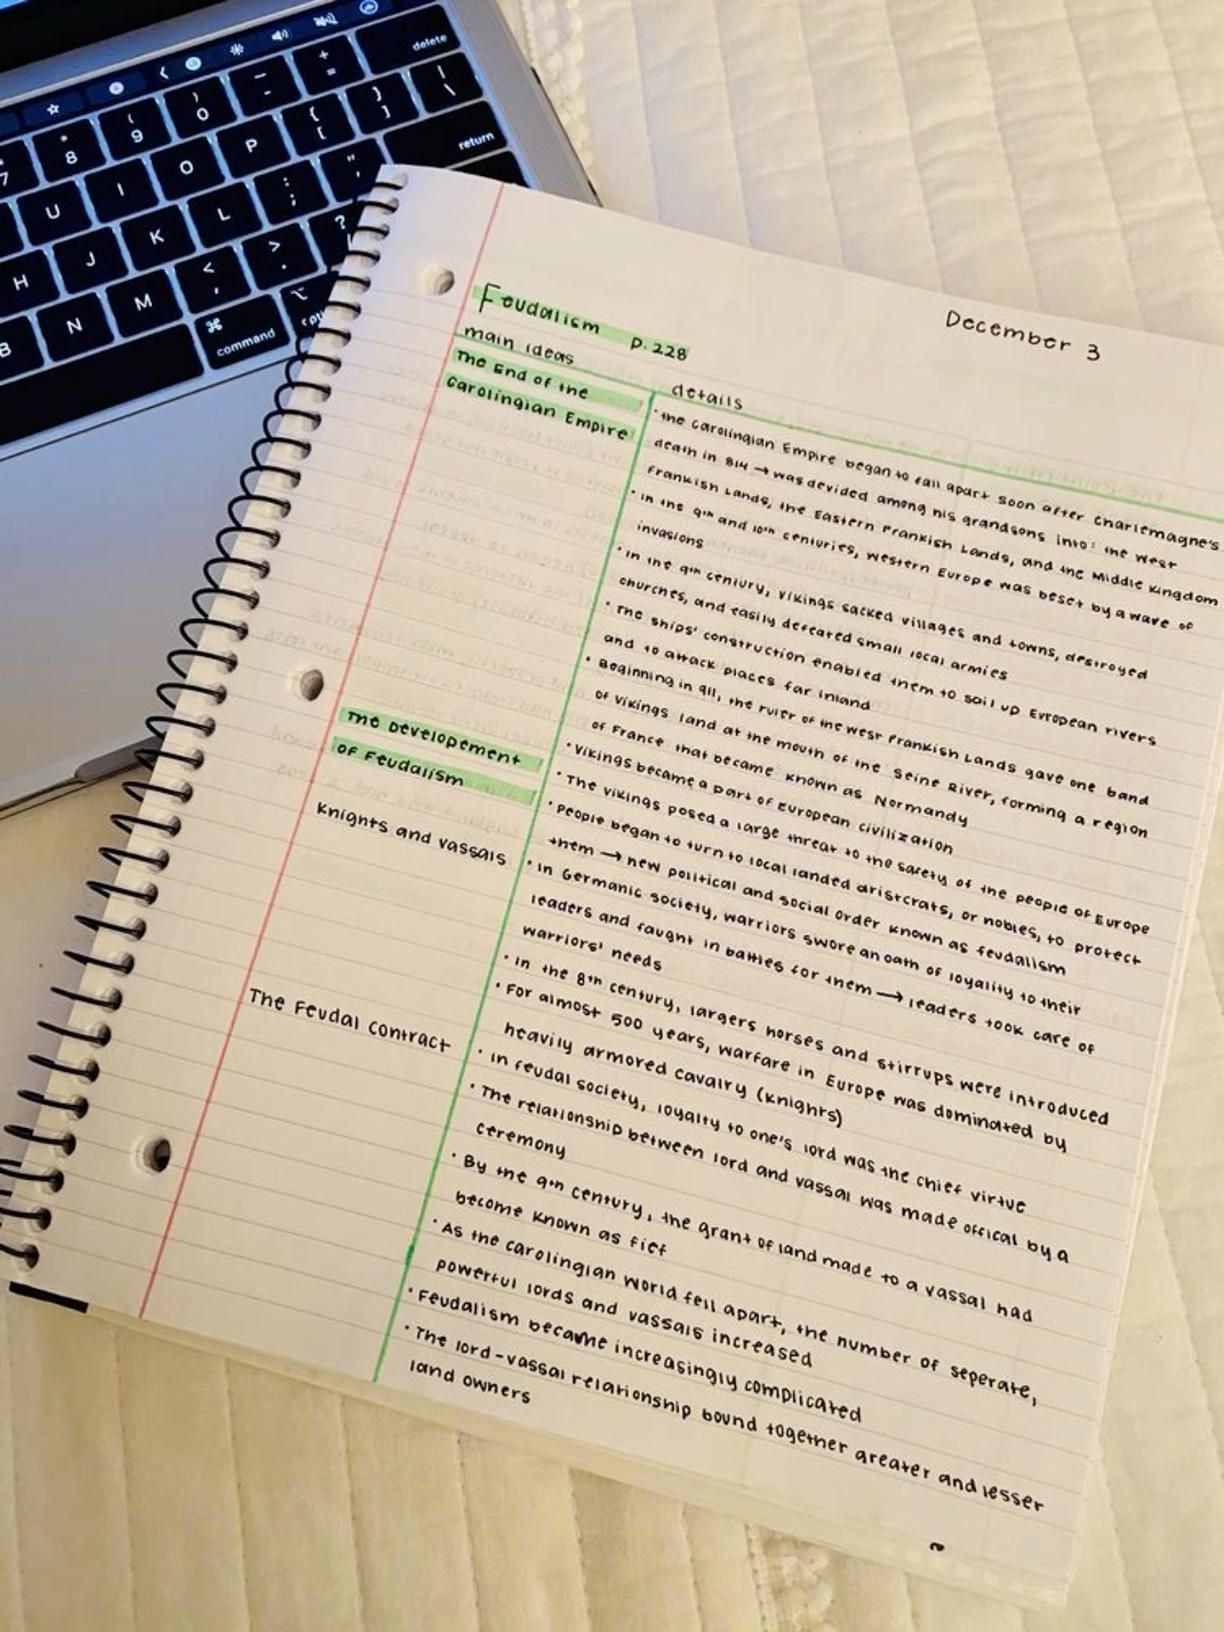 delete
+ =
_ -
) 0
( 9
* 8
7
return
} ]
{ [
P
O
I
U
" '
: ;
L
K
J
H
?
> .
< ,
M
N
B
⌘
command
⌥
Feudalism p. 228
December 3
main ideas
details
The End of the
Carolingian Empire
• the Carolingian Empire began to fall apart soon after Charlemagne's
death in 814 → was devided among his grandsons into: the West
Frankish Lands, the Eastern Frankish Lands, and the Middle Kingdom
• in the 9th and 10th centuries, Western Europe was beset by a wave of
invasions
• in the 9th century, Vikings sacked villages and towns, destroyed
churches, and easily defeated small local armies
• The ships' construction enabled them to sail up European rivers
and to attack places far inland
• Beginning in 911, the ruler of the west Frankish Lands gave one band
of Vikings land at the mouth of the Seine River, forming a region
of France that became known as Normandy
• Vikings became a part of European civilization
The Developement
of Feudalism
• The vikings posed a large threat to the safety of the people of Europe
• People began to turn to local landed aristcrats, or nobles, to protect
them → new political and social order known as feudalism
Knights and vassals
• in Germanic society, warriors swore an oath of loyality to their
leaders and faught in battles for them → leaders took care of
warriors' needs
• In the 8th century, largers horses and stirrups were introduced
• For almost 500 years, warfare in Europe was dominated by
heavily armored cavalry (knights)
• in feudal society, loyalty to one's lord was the chief virtue
The Feudal Contract
• The relationship between lord and vassal was made offical by a
ceremony
• By the 9th century, the grant of land made to a vassal had
become known as fief
• As the carolingian world fell apart, the number of seperate,
powerful lords and vassals increased
• Feudalism became increasingly complicated
• The lord-vassal relationship bound together greater and lesser
land owners